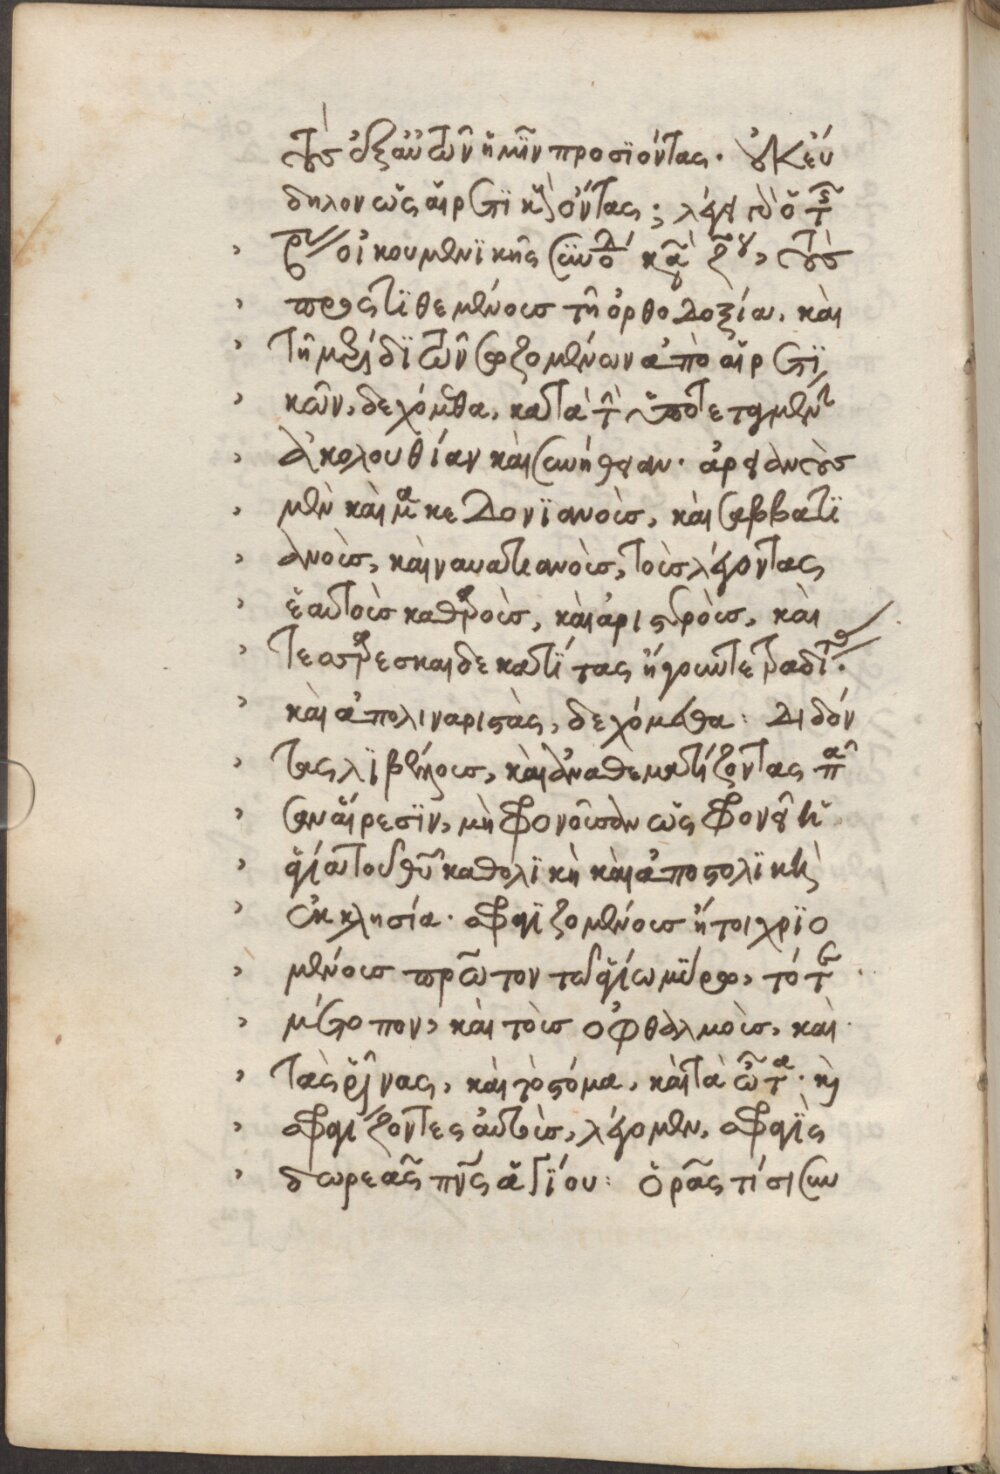 τοὺς ἐξ αὐτῶν ἡμῖν προσϊόντας. οὐκ εὔ
δηλον ὡς αἱρετϊκοὺς ὄντας; λέγει γὰρ ὁ τῆς
τρίτης οἰκουμενϊκῆς συνόδου κανὼν ζος, τοὺς
προστϊθεμένους τῆ ὀρθοδοξία, καὶ
τῆ μερίδϊ τῶν σωζομένων ἀπὸ αἱρετϊ
κῶν, δεχόμεθα, κατὰ τὴν ὑποτεταγμένην
ἀκολουθίαν καὶ συνήθειαν. ἀρειανοὺς
μὲν καὶ μακεδονϊανοὺς, καὶ σαββατϊ
ανοὺς, καὶ ναυατιανοὺς, τοὺς λέγοντας
ἑαυτοὺς καθαροὺς, καὶ ἀριστεροὺς, καὶ
τεσσαρεσκαιδεκατϊτας ἤγουν τετραδίτας.
καὶ ἀπολιναριστὰς, δεχόμεθα: διδόν
τας λϊβέλλους, καὶ ἀναθεματίζοντας πᾶ
σαν αἵρεσϊν, μὴ φρονοῦσαν ὡς φρονεῖ ἡ
ἁγία τοῦ θῦ καθολϊκὴ καὶ ἀποστολϊκὴ
ἐκκλησία. σφραγϊζομένους ἤτοι χρϊο
μένους πρῶτον τῶ ἁγίω μύρω, τό τε
μέτωπον, καὶ τοὺς ὀφθαλμοὺς, καὶ
τὰς ῥῖνας, καὶ τὸ στόμα, καὶ τὰ ὦτα. καὶ
σφραγίζοντες αὐτοὺς, λέγομεν, σφραγὶς
δωρεᾶς πνς ἁγϊου: ὁρᾶς τίσι συν